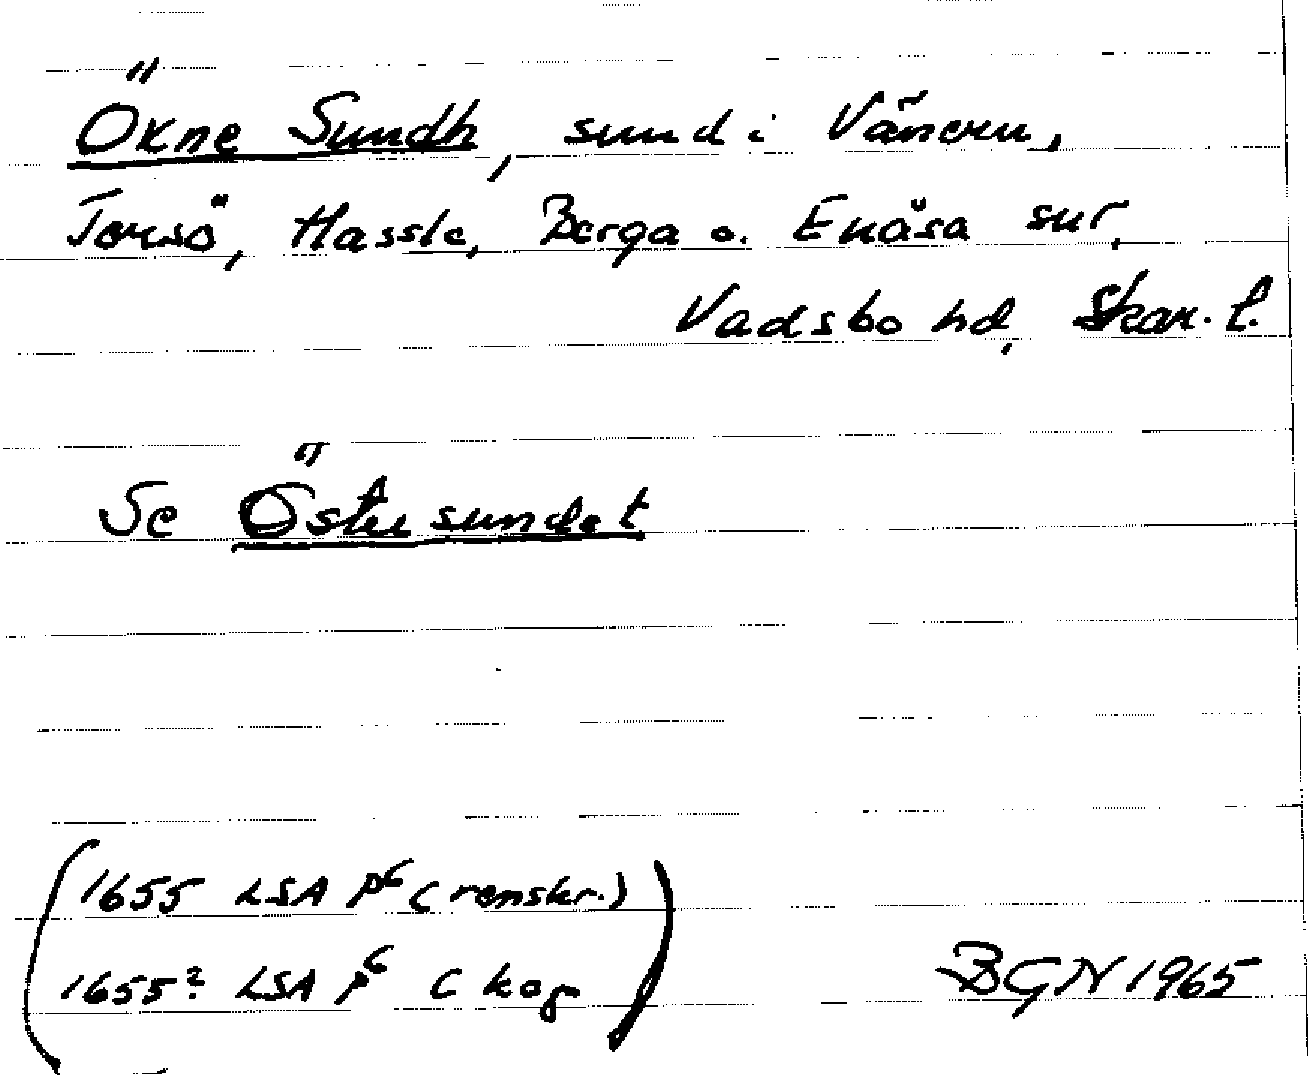 Ökne Sundh, sund i Vänern,
Torsö, Hassle, Berga o. Enåsa snr,
Vadsbo hd, Skar. l.
Se Östersundet
(1655 LSA P6 (renskr.)
1655? LSA P6 (kop)
BGN 1965